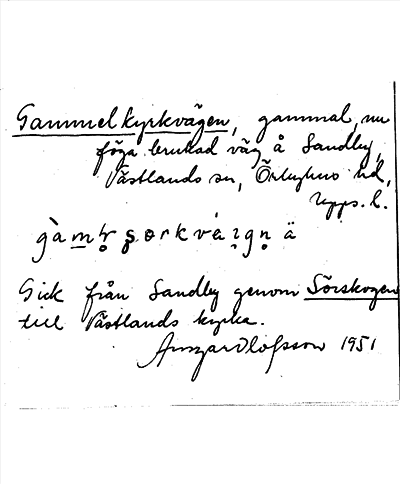 Gammelkyrkvägen, gammal, nu
föga brukad väg å Sandby,
Västlands sn, Örbyhus hd,
Upps. l.
Gick från Sandby genom Sörskogen
till Västlands kyrka.
Ansgar Olofsson 1951